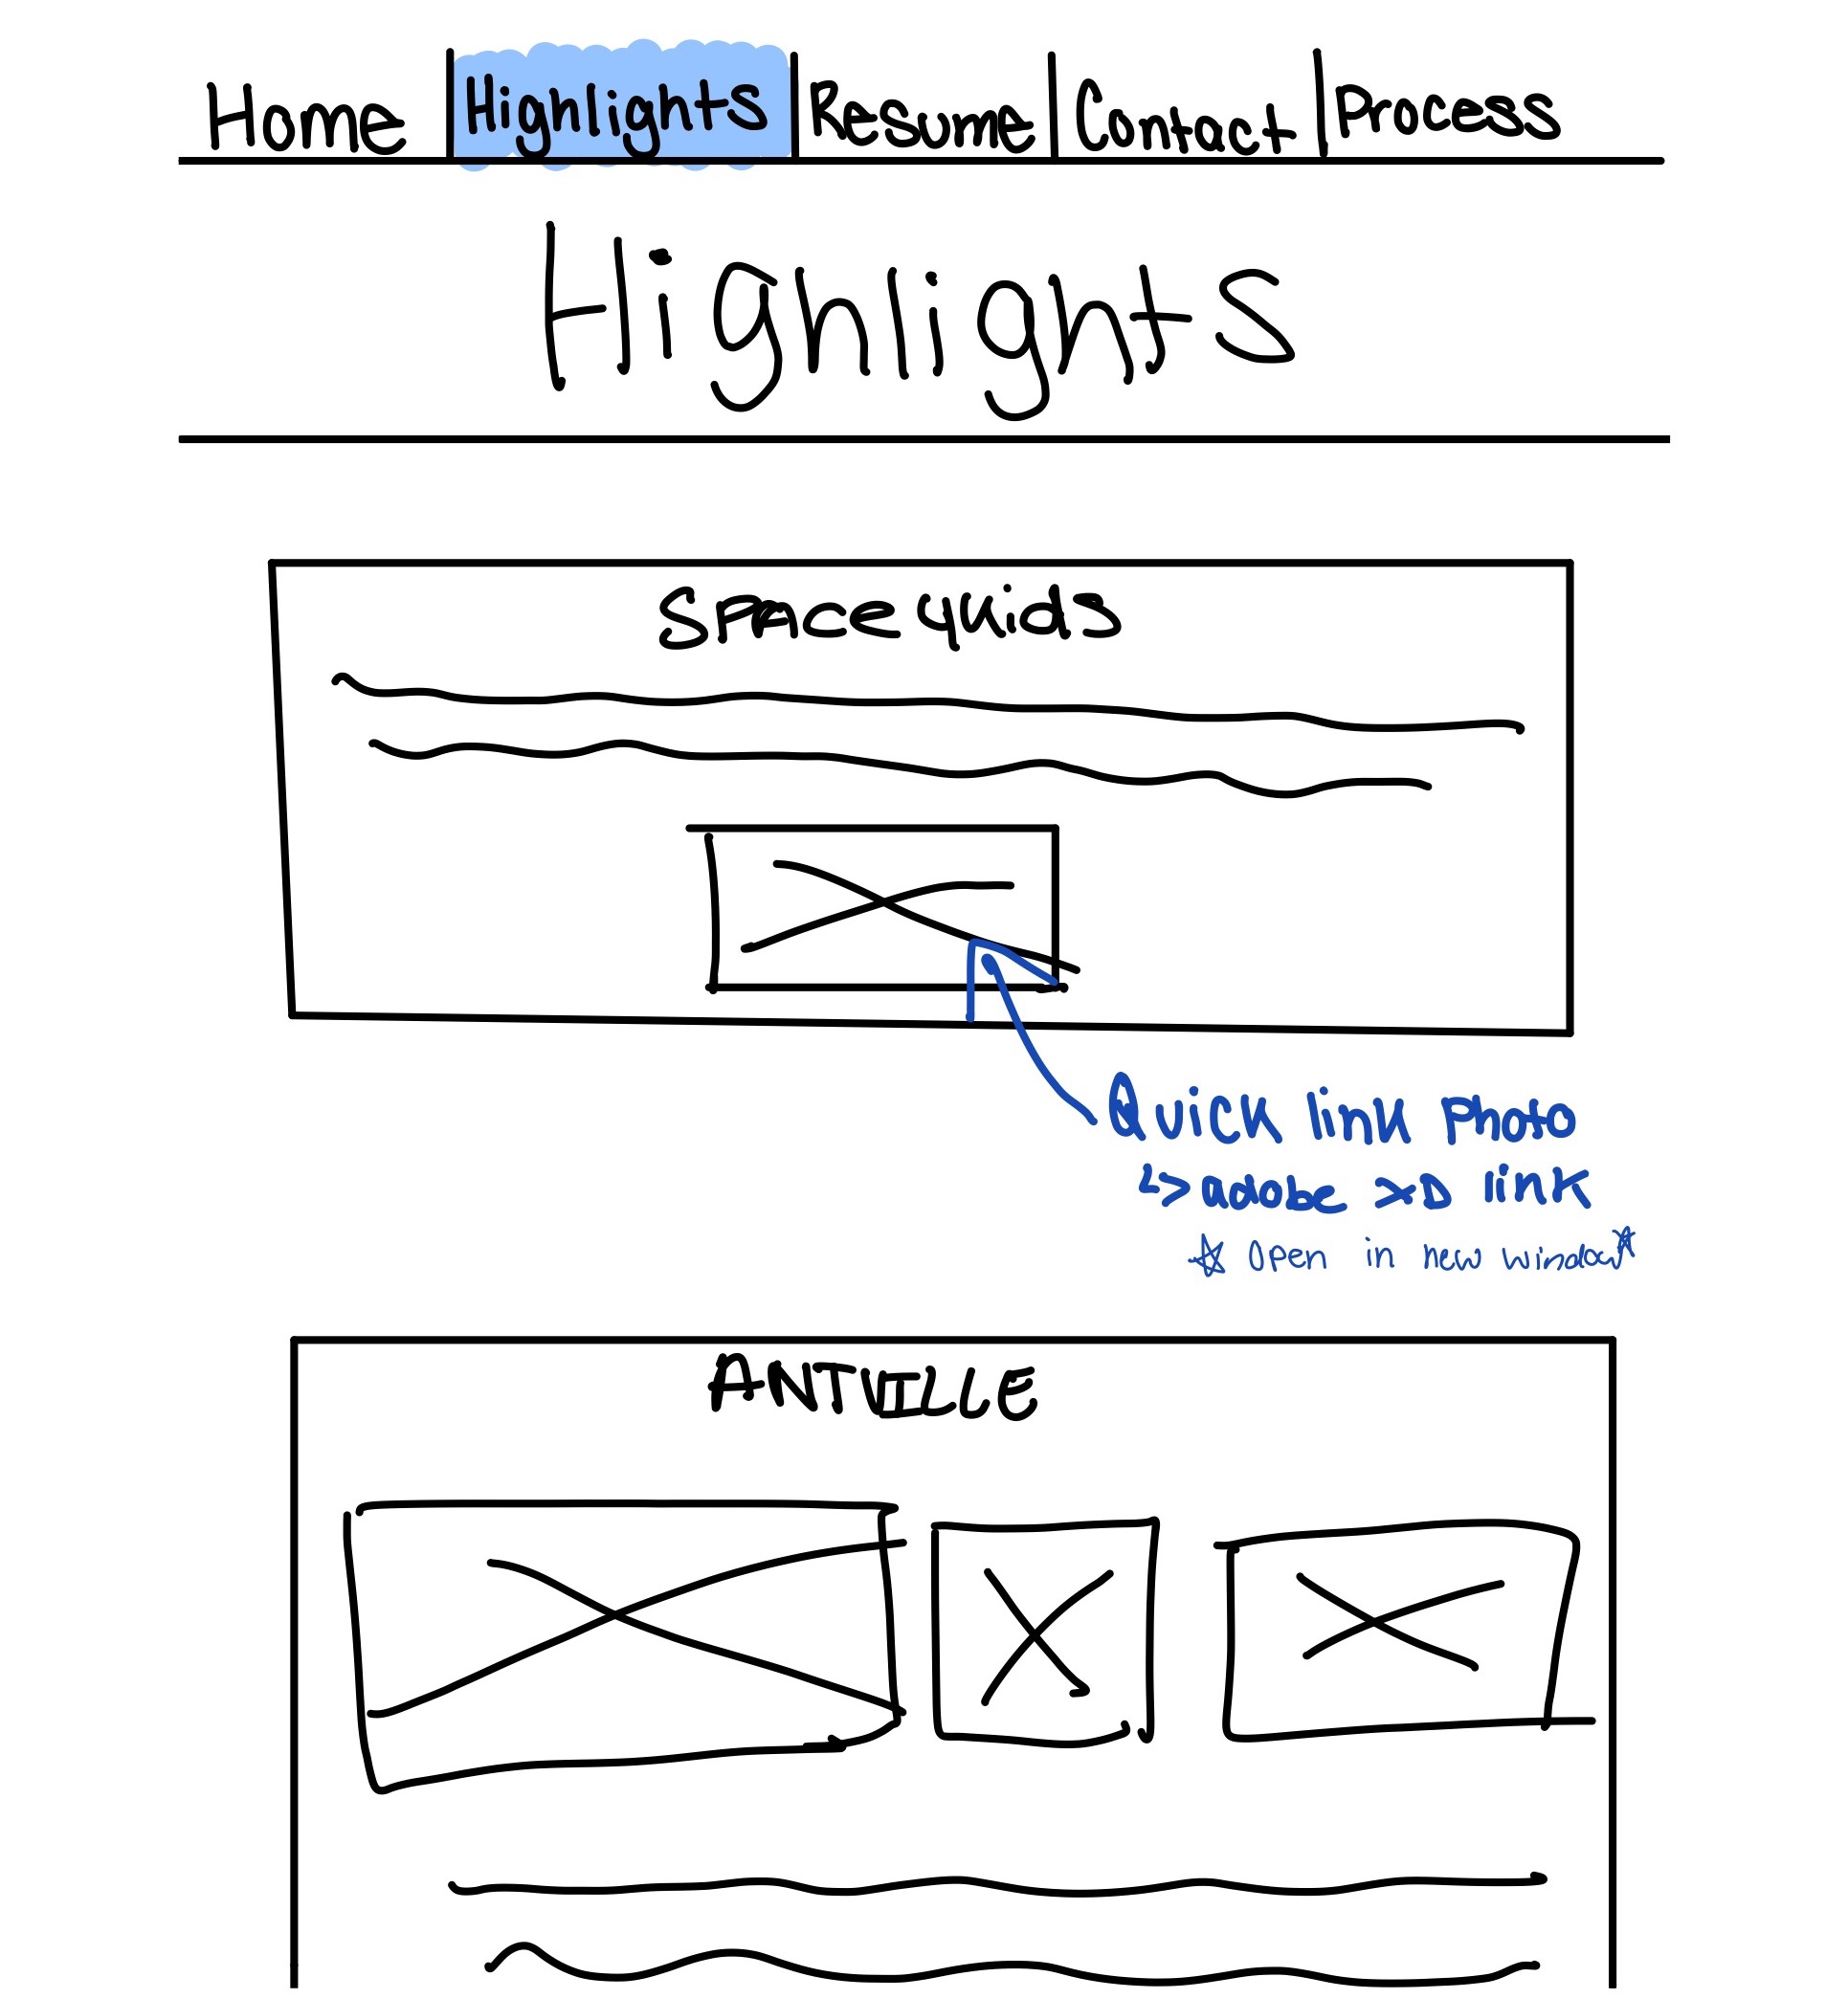 Home Highlights Resume Contact Process
Highlights
SPACe 4 Kids
Quick link Photo
↳> adobe XD link
☆ Open in new window☆
ANTVILLE